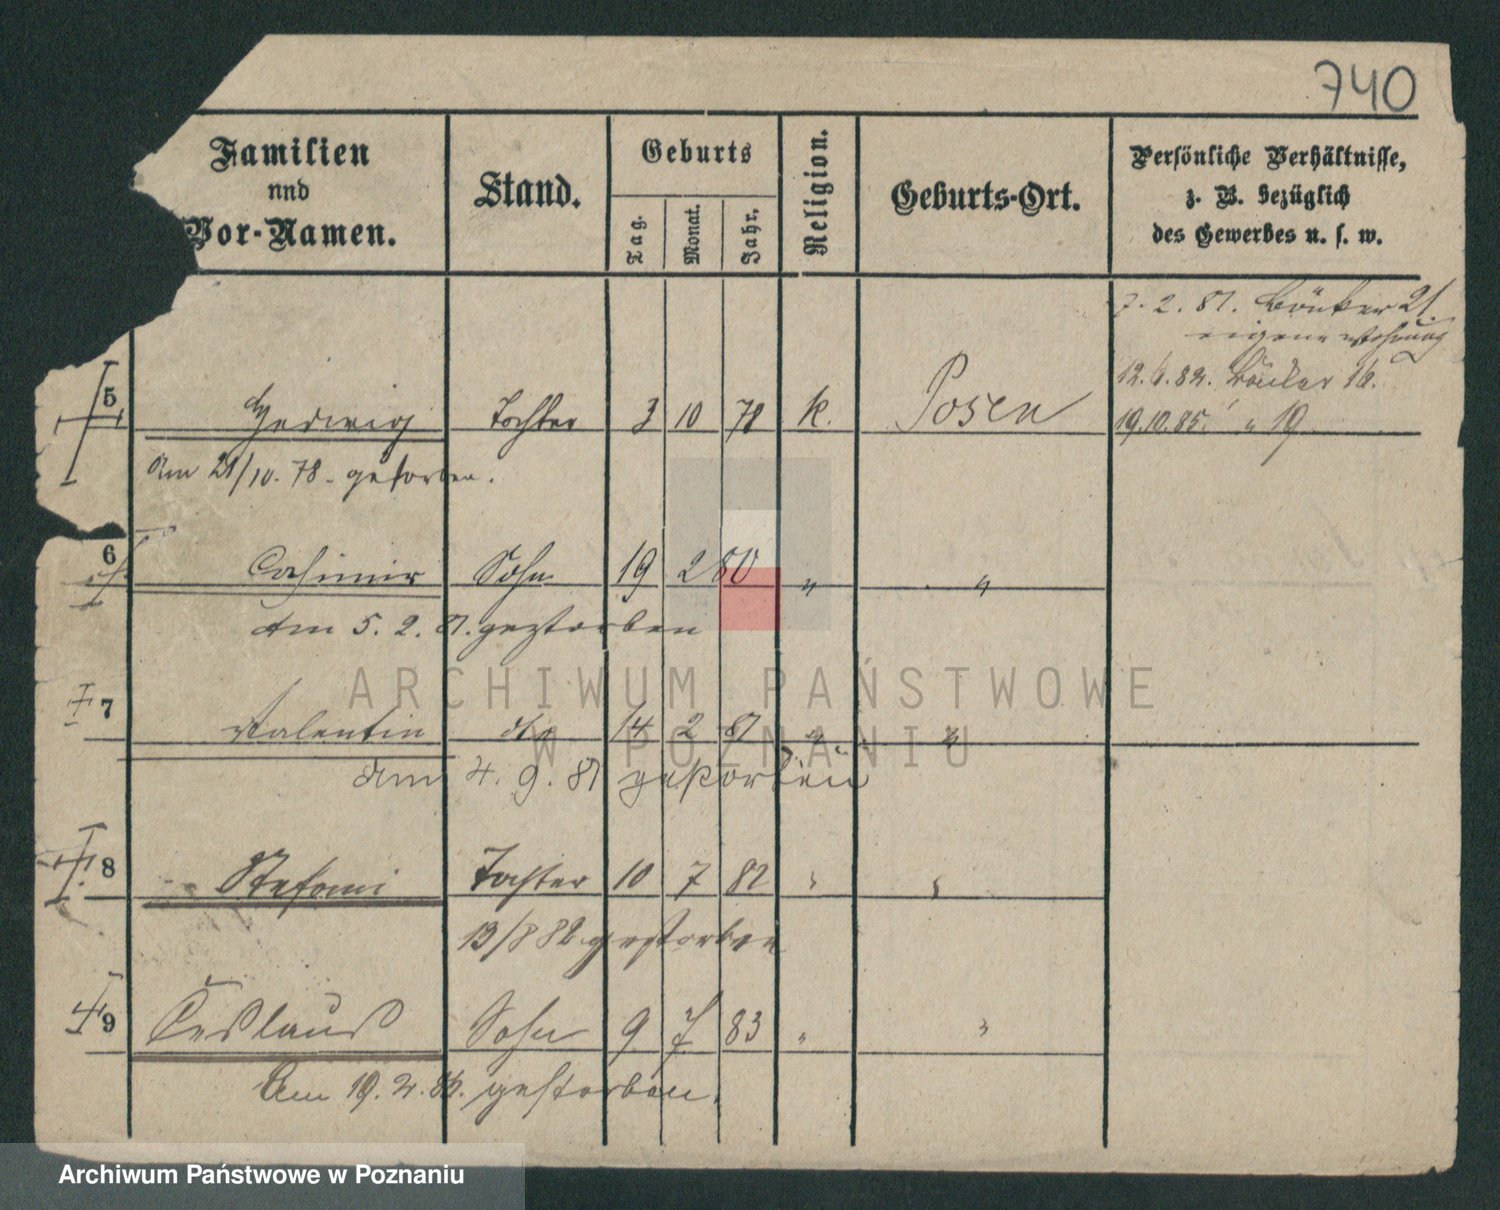 740
Familien
und
Vor-Namen.
Stand.
Geburts
Tag.
Monat.
Jahr.
Religion.
Geburts-Ort.
Persönliche Verhältnisse,
z. B. bezüglich
des Gewerbes u. s. w.
7. 2. 81. 21.
eigene Wohnung
12. 6. 82. 16.
19.10.85. " 19
5 Hedwig Tochter 3 10 78 k. Posen
Am 21/10. 78 - gestorben.
6 Casimir Sohn 19 2 80 " "
Am 5. 2. 81. gestorben
7 Valentin dto 14 2 81 " "
Am 4. 9. 81 gestorben
8 Stefani Tochter 10 7 82 " "
13/8 82 gestorben
9 Ceslaus Sohn 9 7 83 " "
Am 19. 2. 86. gestorben.
ARCHIWUM PAŃSTWOWE
W POZNANIU
Archiwum Państwowe w Poznaniu